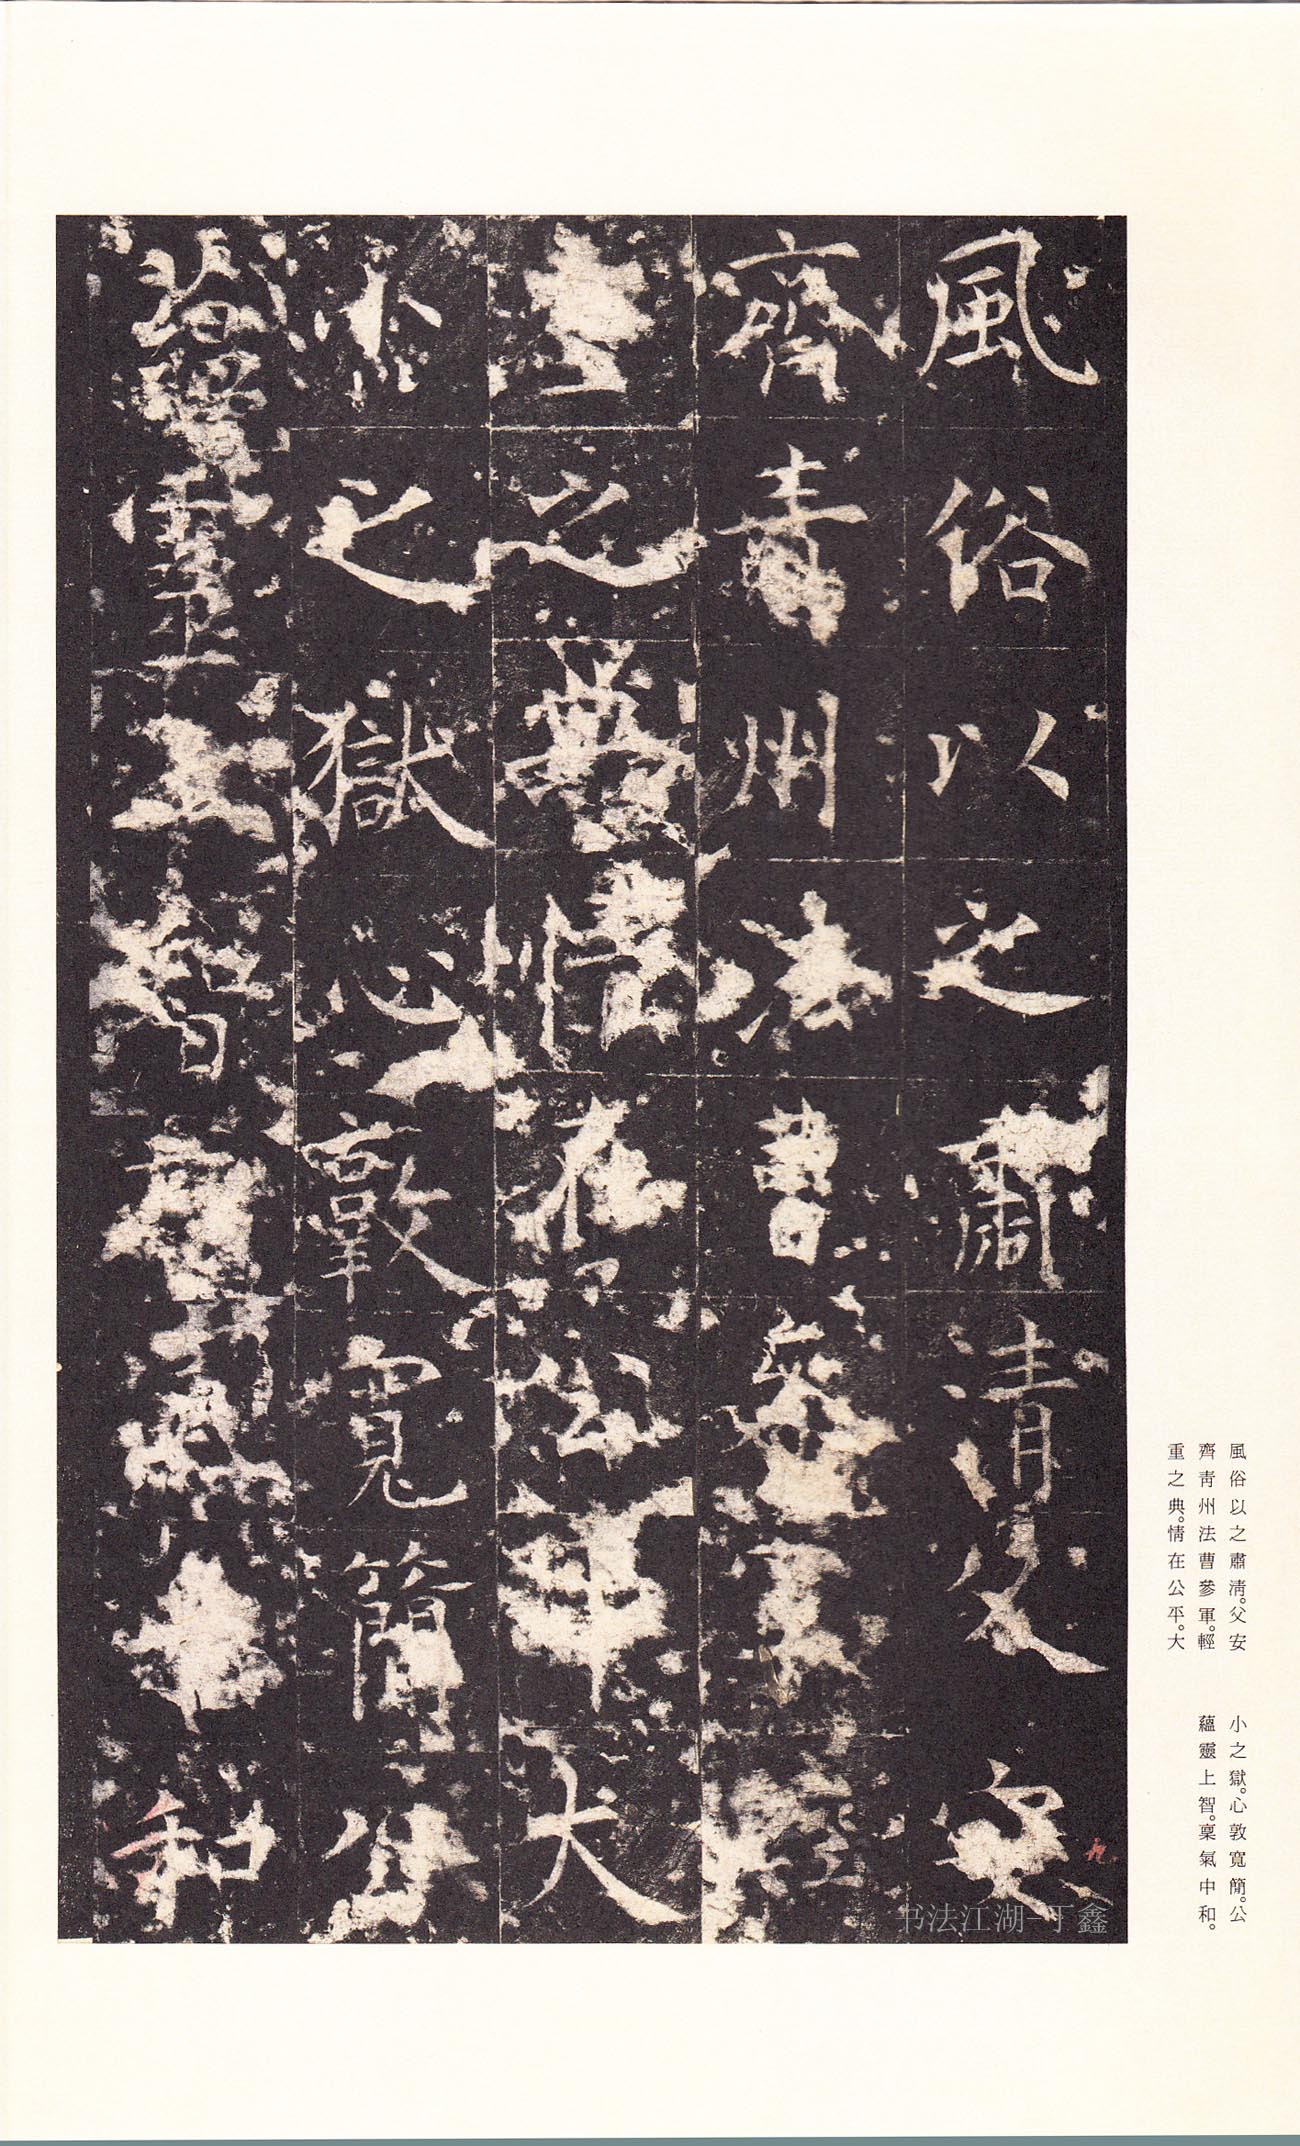 風俗以之肅清父安
齊青州法曹參軍輕
重之典情在公平大
小之獄心敦寬簡公
蘊靈上智稟氣中和
風俗以之肅清。父安
齊靑州法曹參軍。輕
重之典。情在公平。大
小之獄。心敦寬簡。公
蘊靈上智。稟氣中和。
书法江湖-丁鑫